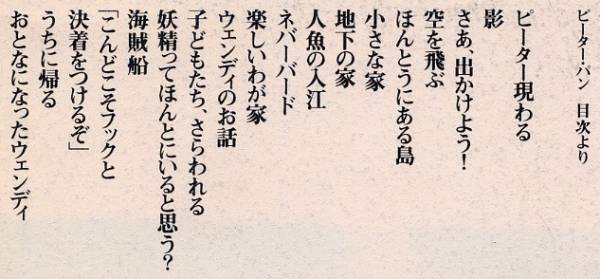 ピーター・パン　目次より
ピーター現わる
影
さあ、出かけよう！
空を飛ぶ
ほんとうにある島
小さな家
地下の家
人魚の入江
ネバーバード
楽しいわが家
ウェンディのお話
子どもたち、さらわれる
妖精ってほんとにいると思う？
海賊船
「こんどこそフックと
決着をつけるぞ」
うちに帰る
おとなになったウェンディ